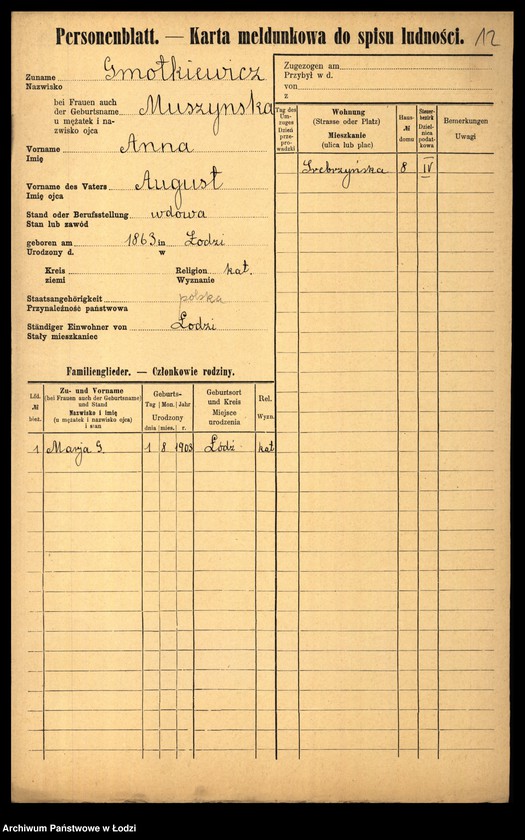 Personenblatt. — Karta meldunkowa do spisu ludności. 12
Zuname Gmotkiewicz
Nazwisko
bei Frauen auch
der Geburtsname Muszynska
u mężatek i na-
zwisko ojca
Vorname Anna
Imię
Vorname des Vaters August
Imię ojca
Stand oder Berufsstellung wdowa
Stan lub zawód
geboren am 1863 in Łodzi
Urodzony d. w
Kreis Religion kat.
ziemi Wyznanie
Staatsangehörigkeit polska
Przynależność państwowa
Ständiger Einwohner von Łodzi
Stały mieszkaniec
Zugezogen am
Przybył w d.
von
z
Tag des Um-zuges Dzień prze-prowadzki
Wohnung
(Strasse oder Platz)
Mieszkanie
(ulica lub plac)
Haus-
№
domu
Steuer-
bezirk
Dziel-
nica
podat-
kowa
Bemerkungen
Uwagi
Srebrzyńska 8 IV
Familienglieder. — Członkowie rodziny.
Lfd.
№
bież.
Zu- und Vorname
(bei Frauen auch der Geburtsname)
und Stand
Nazwisko i imię
(u mężatek i nazwisko ojca)
i stan
Geburts-
Tag Mon. Jahr
Urodzony
dnia mies. r.
Geburtsort
und Kreis
Miejsce
urodzenia
Rel.
Wyzn.
1 Marja G. 1 8 1903 Łódź kat
Archiwum Państwowe w Łodzi